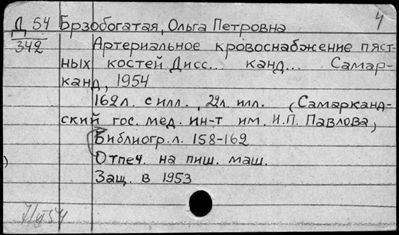 Д 54 Брзобогатая, Ольга Петровна 4
342 Артериальное кровоснабжение пяст-
ных костей Дисс... канд... Самар-
канд, 1954
162л. с илл., 22л. илл. (Самарканд-
ский гос. мед. ин-т им. И.П. Павлова,
Библиогр. л. 158-162
Отпеч. на пиш. маш.
Защ. в 1953